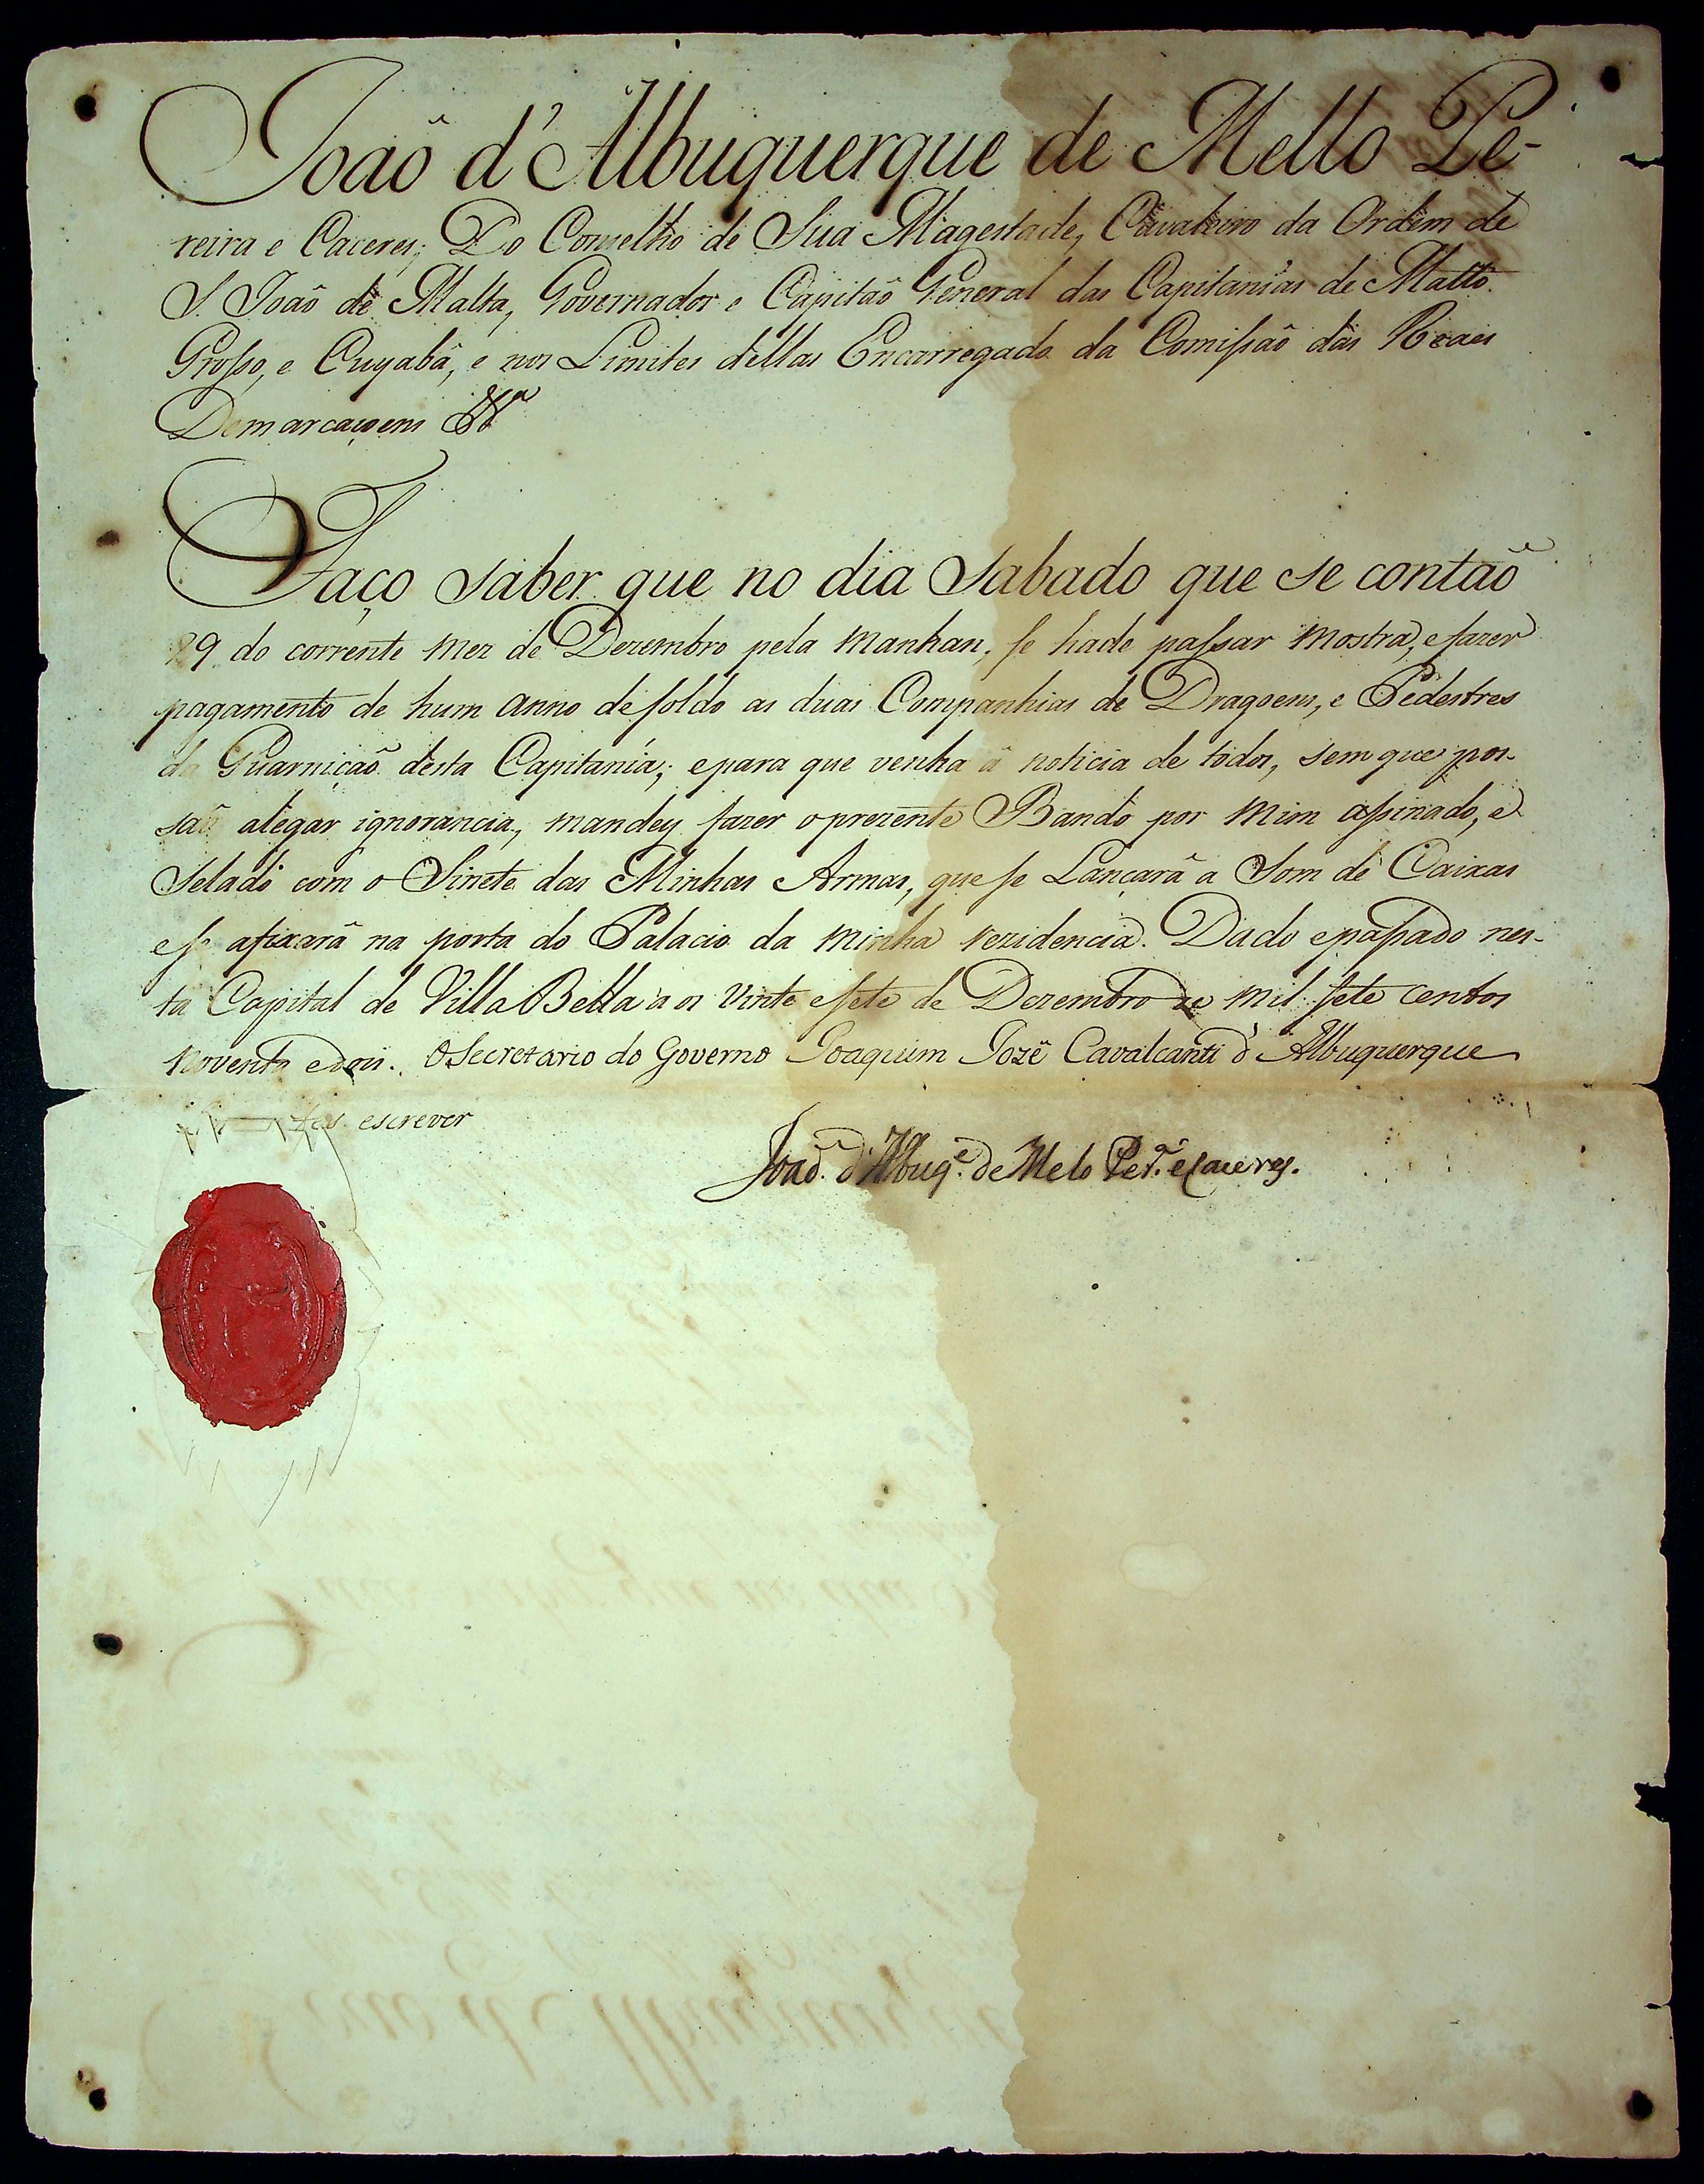 João d'Albuquerque de Mello Pe-
reira e Caceres; Do Conselho de Sua Magestade, Cavaleiro da Ordem de
S. João de Malta, Governador e Capitaõ General das Capitanîas de Matto
Grosso, e Cuyabâ, e nos Limites dellas Encarregado da Comissaõ das Reaes
Demarcaçoens &ª
Faço saber que no dia Sabado que se contaõ
29 do corrente mez de Dezembro pela manhan, se hade passar mostra, e fazer
pagamento de hum anno de soldo as duas Companhias de Dragoens, e Pedestres
da Guarniçaõ desta Capitanîa; e para que venha â noticia de todos, sem que pos-
saõ alegar ignorancia, mandey fazer o prezente Bando por mim assinado, e
Selado com o Sinete das Minhas Armas, que se Lançarâ a Som de Caixas
e se afixarâ na porta do Palacio da minha rezidencia. Dado e passado nes-
ta Capital de Villa Bella aos vinte e sete de Dezembro de mil sete centos
noventa e dois. O Secretario do Governo Joaquim Jozê Cavalcanti d'Albuquerque
fes escrever
Joaõ d'Albuq.e de Melo Per.ª e Caceres.